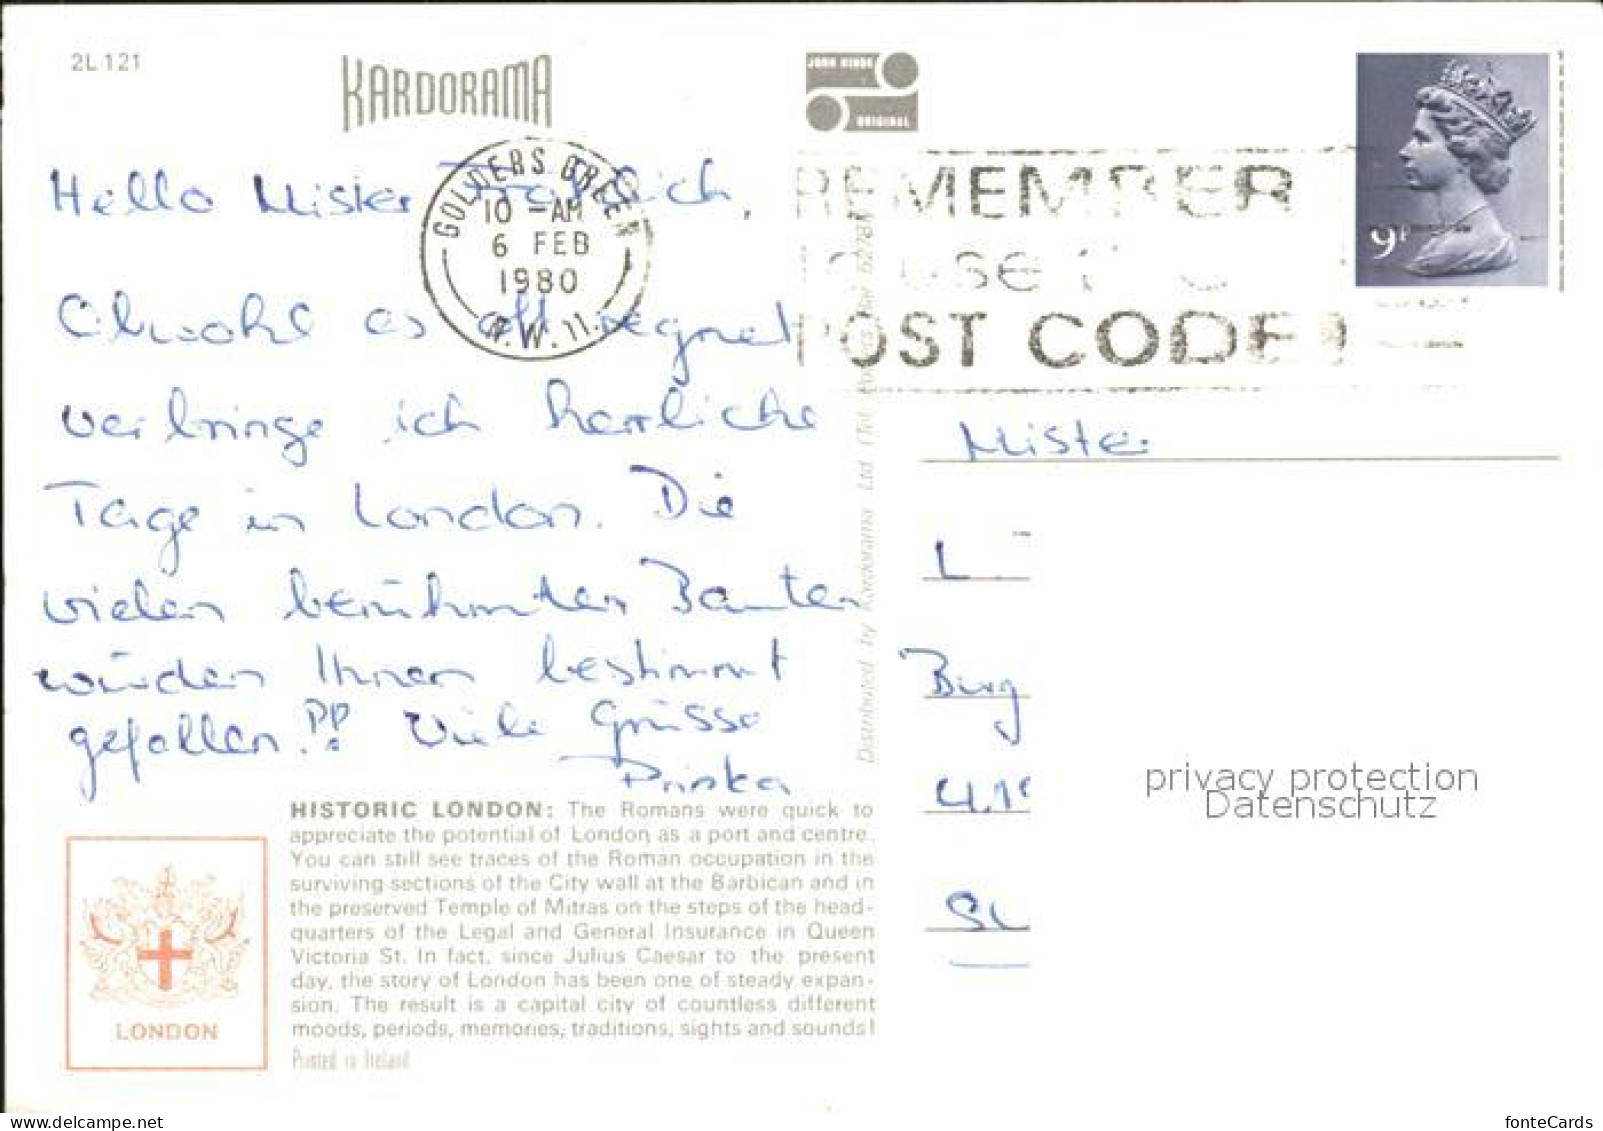 2L121
KARDORAMA
JOHN HINDE
ORIGINAL
GOLDERS GREEN
10 -AM
6 FEB
1980
N.W.11.
REMEMBER
use the
POST CODE!
9P
Hello Mister
Obwohl es oft regnet
verbringe ich herrliche
Tage in London. Die
vielen berühmten Bauten
würden Ihnen bestimmt
gefallen!!! Viele Grüsse
Priska
Distributed by Kardorama Ltd (Tel. Potters Bar
Mister
L
Burg
SL
privacy protection
Datenschutz
HISTORIC LONDON: The Romans were quick to
appreciate the potential of London as a port and centre.
You can still see traces of the Roman occupation in the
surviving sections of the City wall at the Barbican and in
the preserved Temple of Mitras on the steps of the head-
quarters of the Legal and General Insurance in Queen
Victoria St. In fact, since Julius Caesar to the present
day, the story of London has been one of steady expan-
sion. The result is a capital city of countless different
moods, periods, memories, traditions, sights and sounds!
LONDON
Printed in Ireland
www.delcampe.net
fonteCards